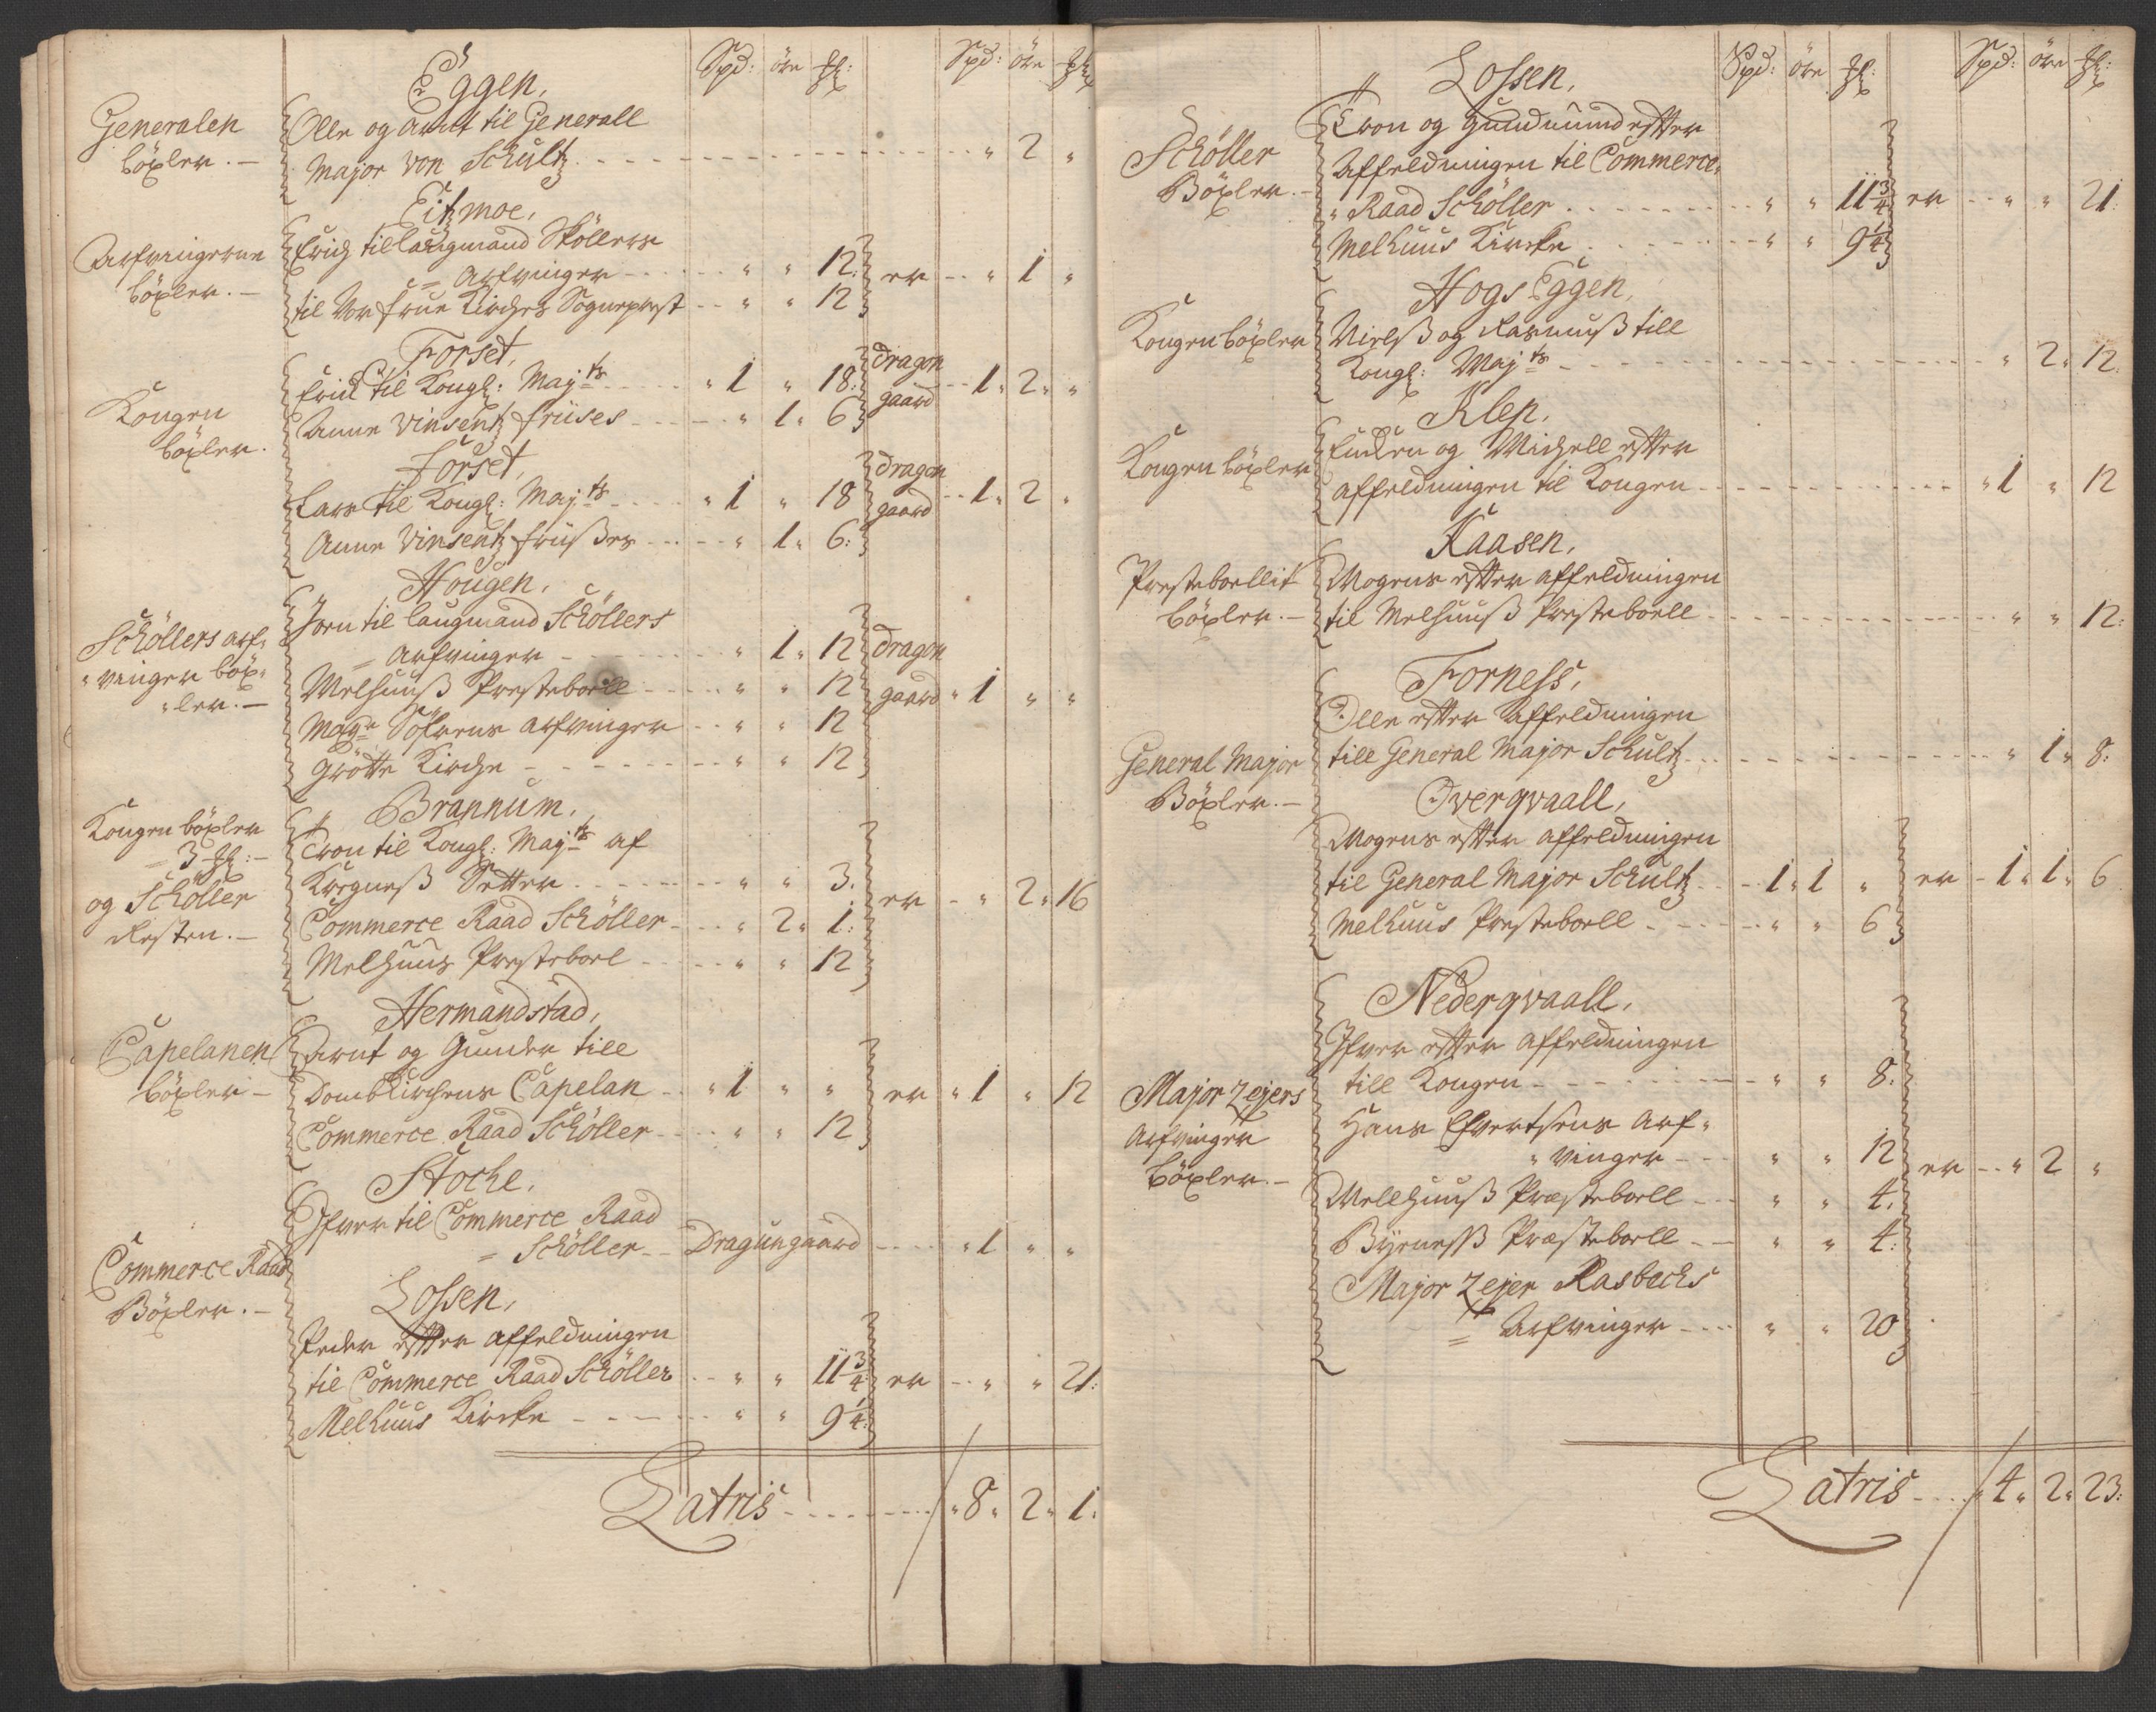 Spd: öre
Spd: öre
Eggen,
Generalen
böxler.
Olle og Arnt til Generall
Major von Schultz " 2 "
Eitzmoe,
Arfvingerne
böxler.
Erich til laugmand Sköllers
= Arfvinger " " 12: er " 1 "
til Vor frue Kirches Sogneprest " " 12
Forset,
Kongen
böxler.
Erich til Kongl: Mayts " 1 " 18: dragon
gaard 1 " 2 " "
Anne Vinsentz friises " 1 " 6
Forset,
Lars til Kongl: Mayts " 1 " 18 dragon
gaard 1 " 2 "
Anne Vinsentz friißes " 1 " 6:
Hougen,
Schöllers arf=
" vinger böx=
" ler.
Jorn til laugmand Schöllers
= Arfvinger " 1 " 12 dragon
Melhuuß Presteboell " " 12 gaard " 1 " "
Söfrens Arfvinger " " 12
Grötte Kirche " " 12
Brannum,
Kongen böxler
= 3
og Schöller
Resten.
Tron til Kongl: Mayts af
Setter " " 3. er " 2 " 16
Commerce Raad Schöller " 2 " 1:
Melhuus Presteboel " " 12
Hermandstad,
Capelanen
böxler
Arnt og Gunder till
Domb Kirchens Capelan " 1 " " er " 1 " 12
Commerce Raad Schöller " " 12
Stocke,
Commerce Raad
Böxler.
Ifver til Commerce Raad
= Schöller Dragungaard " 1 " "
Lossen,
Peder efter affeldningen
til Commerce Raad Schöller " " 11 3/4 er " " 21:
Melhuus Kircke " " 9 1/4:
Latris " 8 " 2 " 1:
Spd: öre
Spd: öre
Lossen,
Schöller
Böxler.
Tron og Gudmund efter
Affeldningen til Commerce
" Raad Schöller " " 11 3/4 er " " 21
Melhuus Kircke " " 9 1/4
Hogs Eggen,
Kongen böxler
Nielß og Rasmuß till
Kongl: Mayts " 2 " 12.
Klep,
Kongen böxler
og Michell efter
affeldningen til Kongen " 1 " 12
Kaasen,
Presteboellit
böxler.
Mogens efter affeldningen
til Melhuuß Presteboell " " 12:
Forness,
General Major
Böxler.
Olle efter Affeldningen
till General Major Schultz " 1 " 8:
Overqvaall,
Mogens efter affeldningen
til General Major Schultz 1 " 1 " er 1 " 1 " 6
Melhuus Presteboell " " 6
Nederqvaall,
Major Zejers
Arfvinger
böxler.
Ifver efter affeldningen
till Kongen " " 8.
Hans Efvertsens Arf=
" vinger " " 12 er " 2 "
Mellhuuß Præsteboell " " 4.
Byeneß Præsteboell " " 4:
Major Zejer Rasbachs
= Arfvinger " " 20
Latris 4 " 2 " 23: